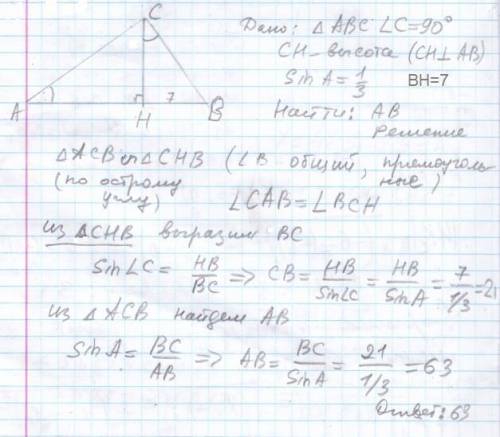 C
Дано: △ABC ∠C=90°
CH-высота (CH⊥AB)
Sin A = 1/3 BH=7
A H 7 B
Найти: AB
Решение
△ACB ∾ △CHB (∠B общий, прямоуголь-
(по острому ные)
углу) ∠CAB=∠BCH
из △CHB выразим BC
Sin∠C = HB/BC => CB = HB/Sin∠C = HB/SinA = 7/1/3 = 21
из △ACB найдем AB
SinA = BC/AB => AB = BC/SinA = 21/1/3 = 63
Ответ: 63